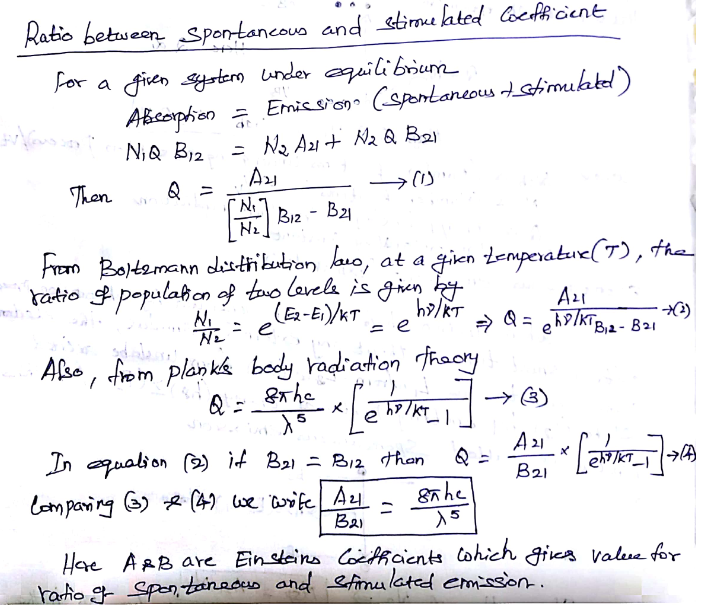 Ratio between spontaneous and stimulated Coefficient
for a given system under equilibrium
Absorption = Emission (spontaneous + stimulated)
N₁Q B₁₂ = N₂ A₂₁ + N₂ Q B₂₁
Then Q = A₂₁ / ([N₁/N₂] B₁₂ - B₂₁) → (1)
From Boltzmann distribution law, at a given temperature (T), the
ratio of population of two levels is given by
N₁/N₂ = e^(E₂-E₁)/KT = e^hν/KT ⇒ Q = A₂₁ / (e^hν/KT B₁₂ - B₂₁) → (2)
Also, from plank's body radiation theory
Q = 8πhc/λ⁵ × [1 / (e^hν/KT - 1)] → (3)
In equation (2) if B₂₁ = B₁₂ then Q = A₂₁/B₂₁ × [1 / (e^hν/KT - 1)] → (4)
Comparing (3) & (4) we write A₂₁/B₂₁ = 8πhc/λ⁵
Here A & B are Einsteins Coefficients which gives value for
ratio of spontaneous and stimulated emission.